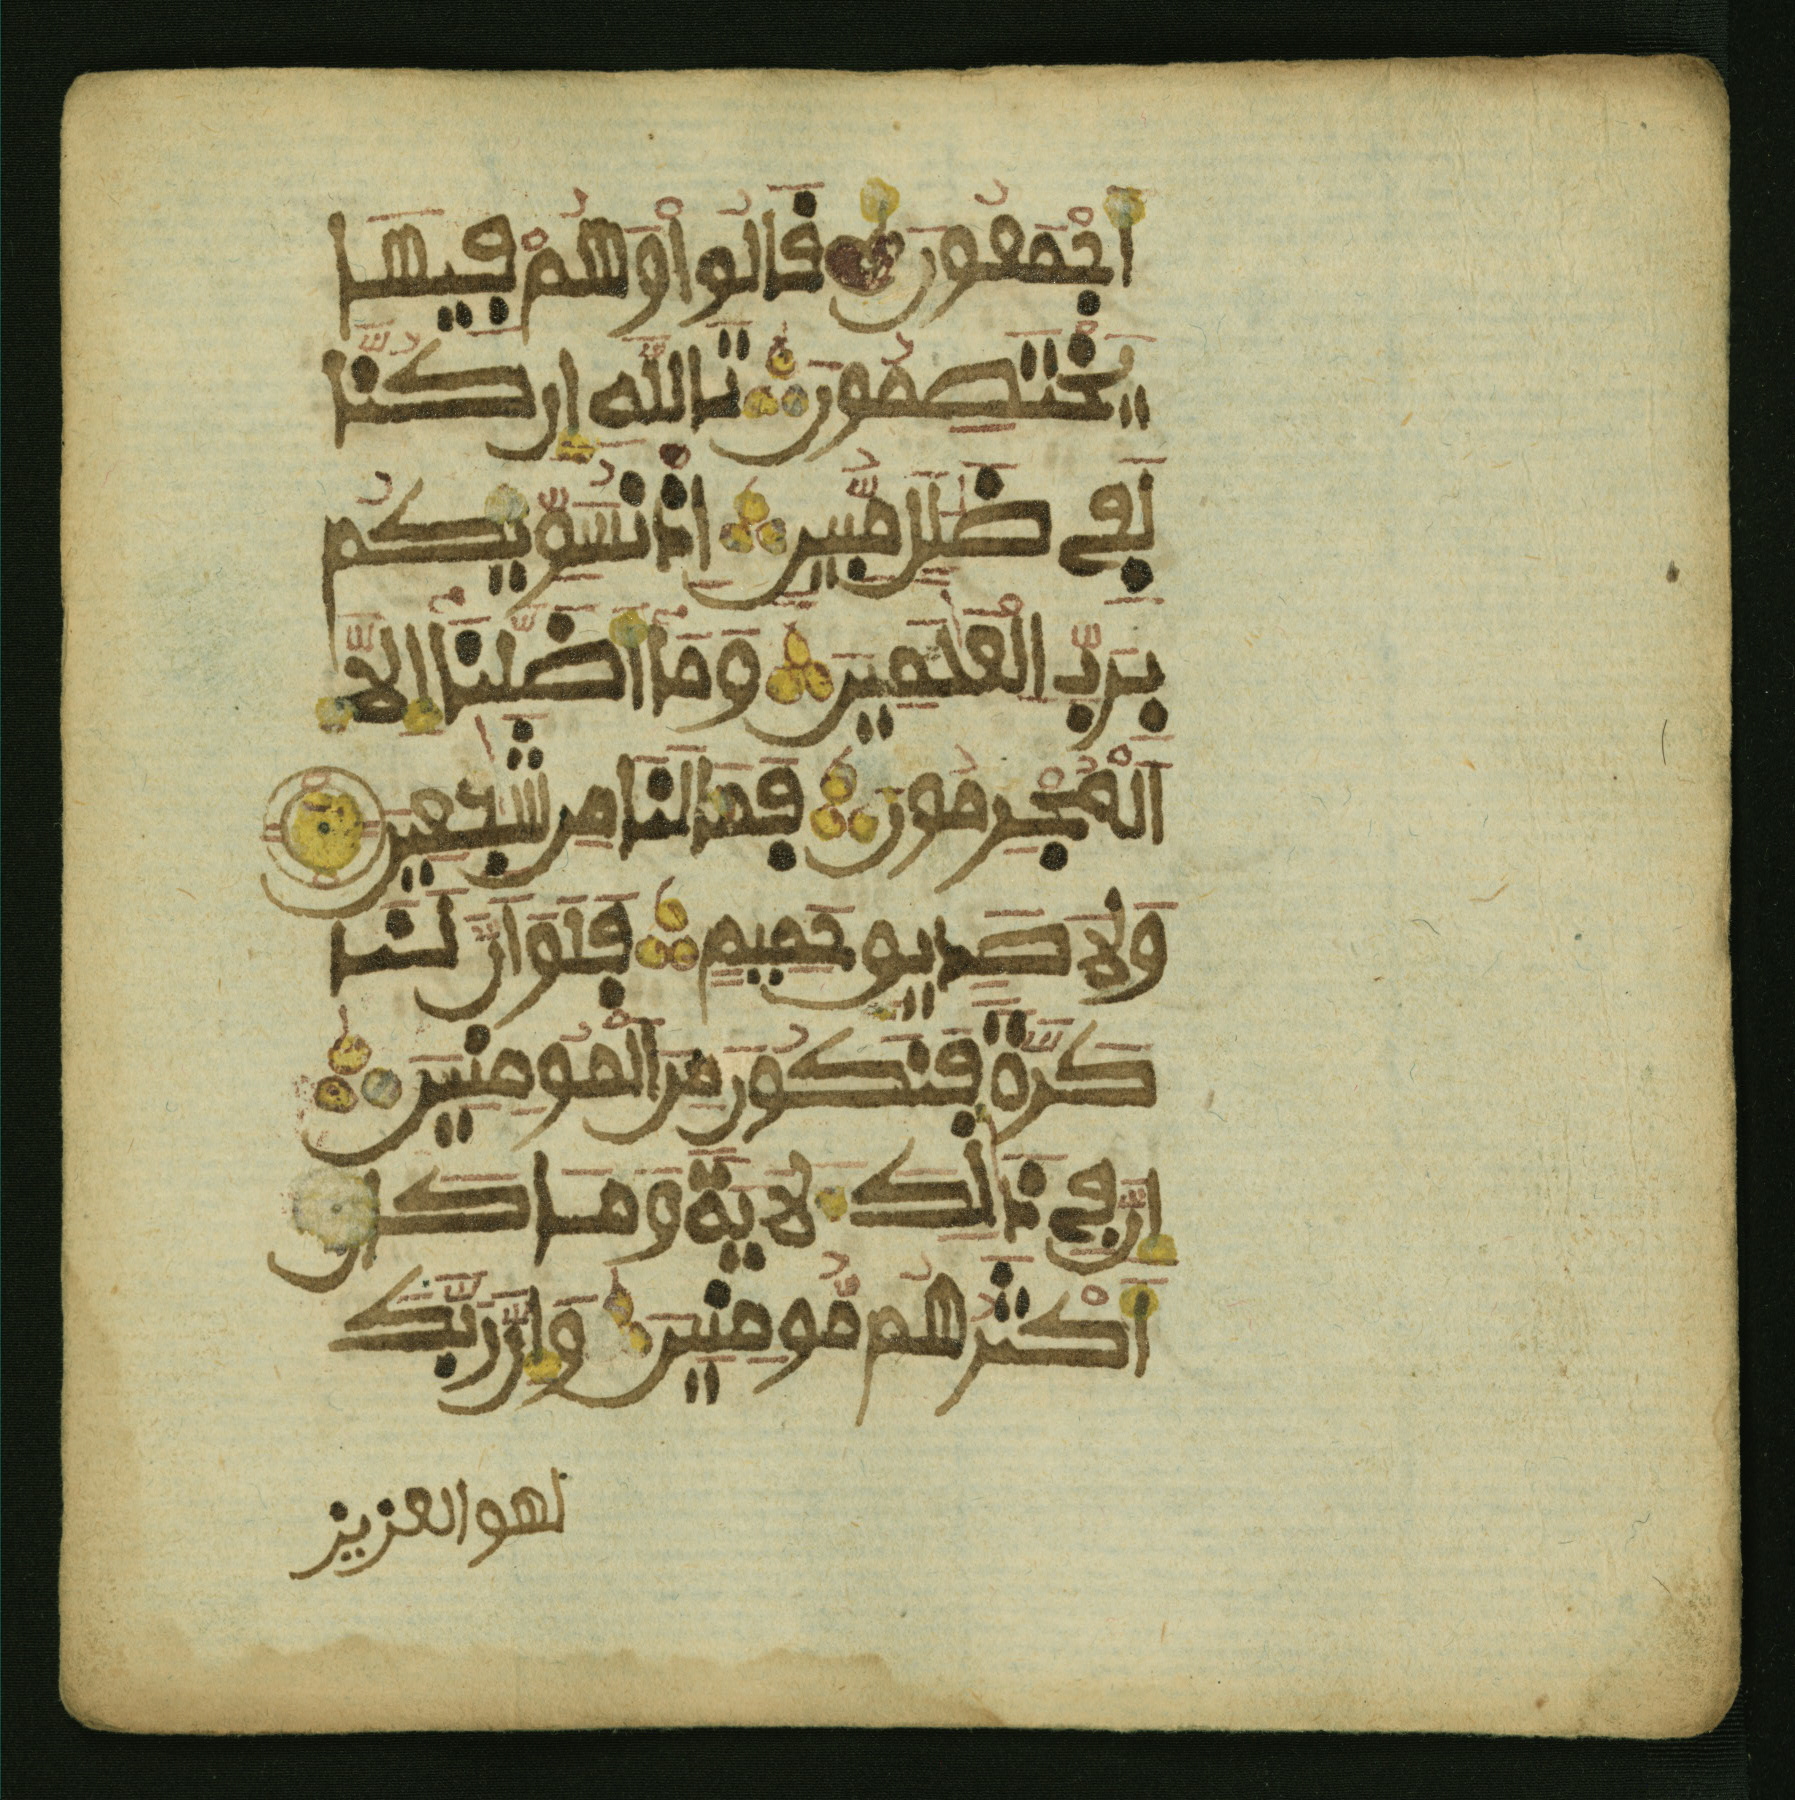 أَجْمَعُونَ قَالُوا أَوْ هُمْ فِيهَا
يَخْتَصِمُونَ تَاللَّهِ إِن كُنَّا
لَفِى ضَلَٰلٍ مُّبِينٍ إِذْ نُسَوِّيكُم
بِرَبِّ الْعَٰلَمِينَ وَمَا أَضَلَّنَا إِلَّا
الْمُجْرِمُونَ فَمَا لَنَا مِن شَٰفِعِينَ
وَلَا صَدِيقٍ حَمِيمٍ فَلَوْ أَنَّ لَنَا
كَرَّةً فَنَكُونَ مِنَ الْمُومِنِينَ
إِنَّ فِى ذَٰلِكَ لَآيَةً وَمَا كَانَ
أَكْثَرُهُم مُّومِنِينَ وَإِنَّ رَبَّكَ
لهو العزيز